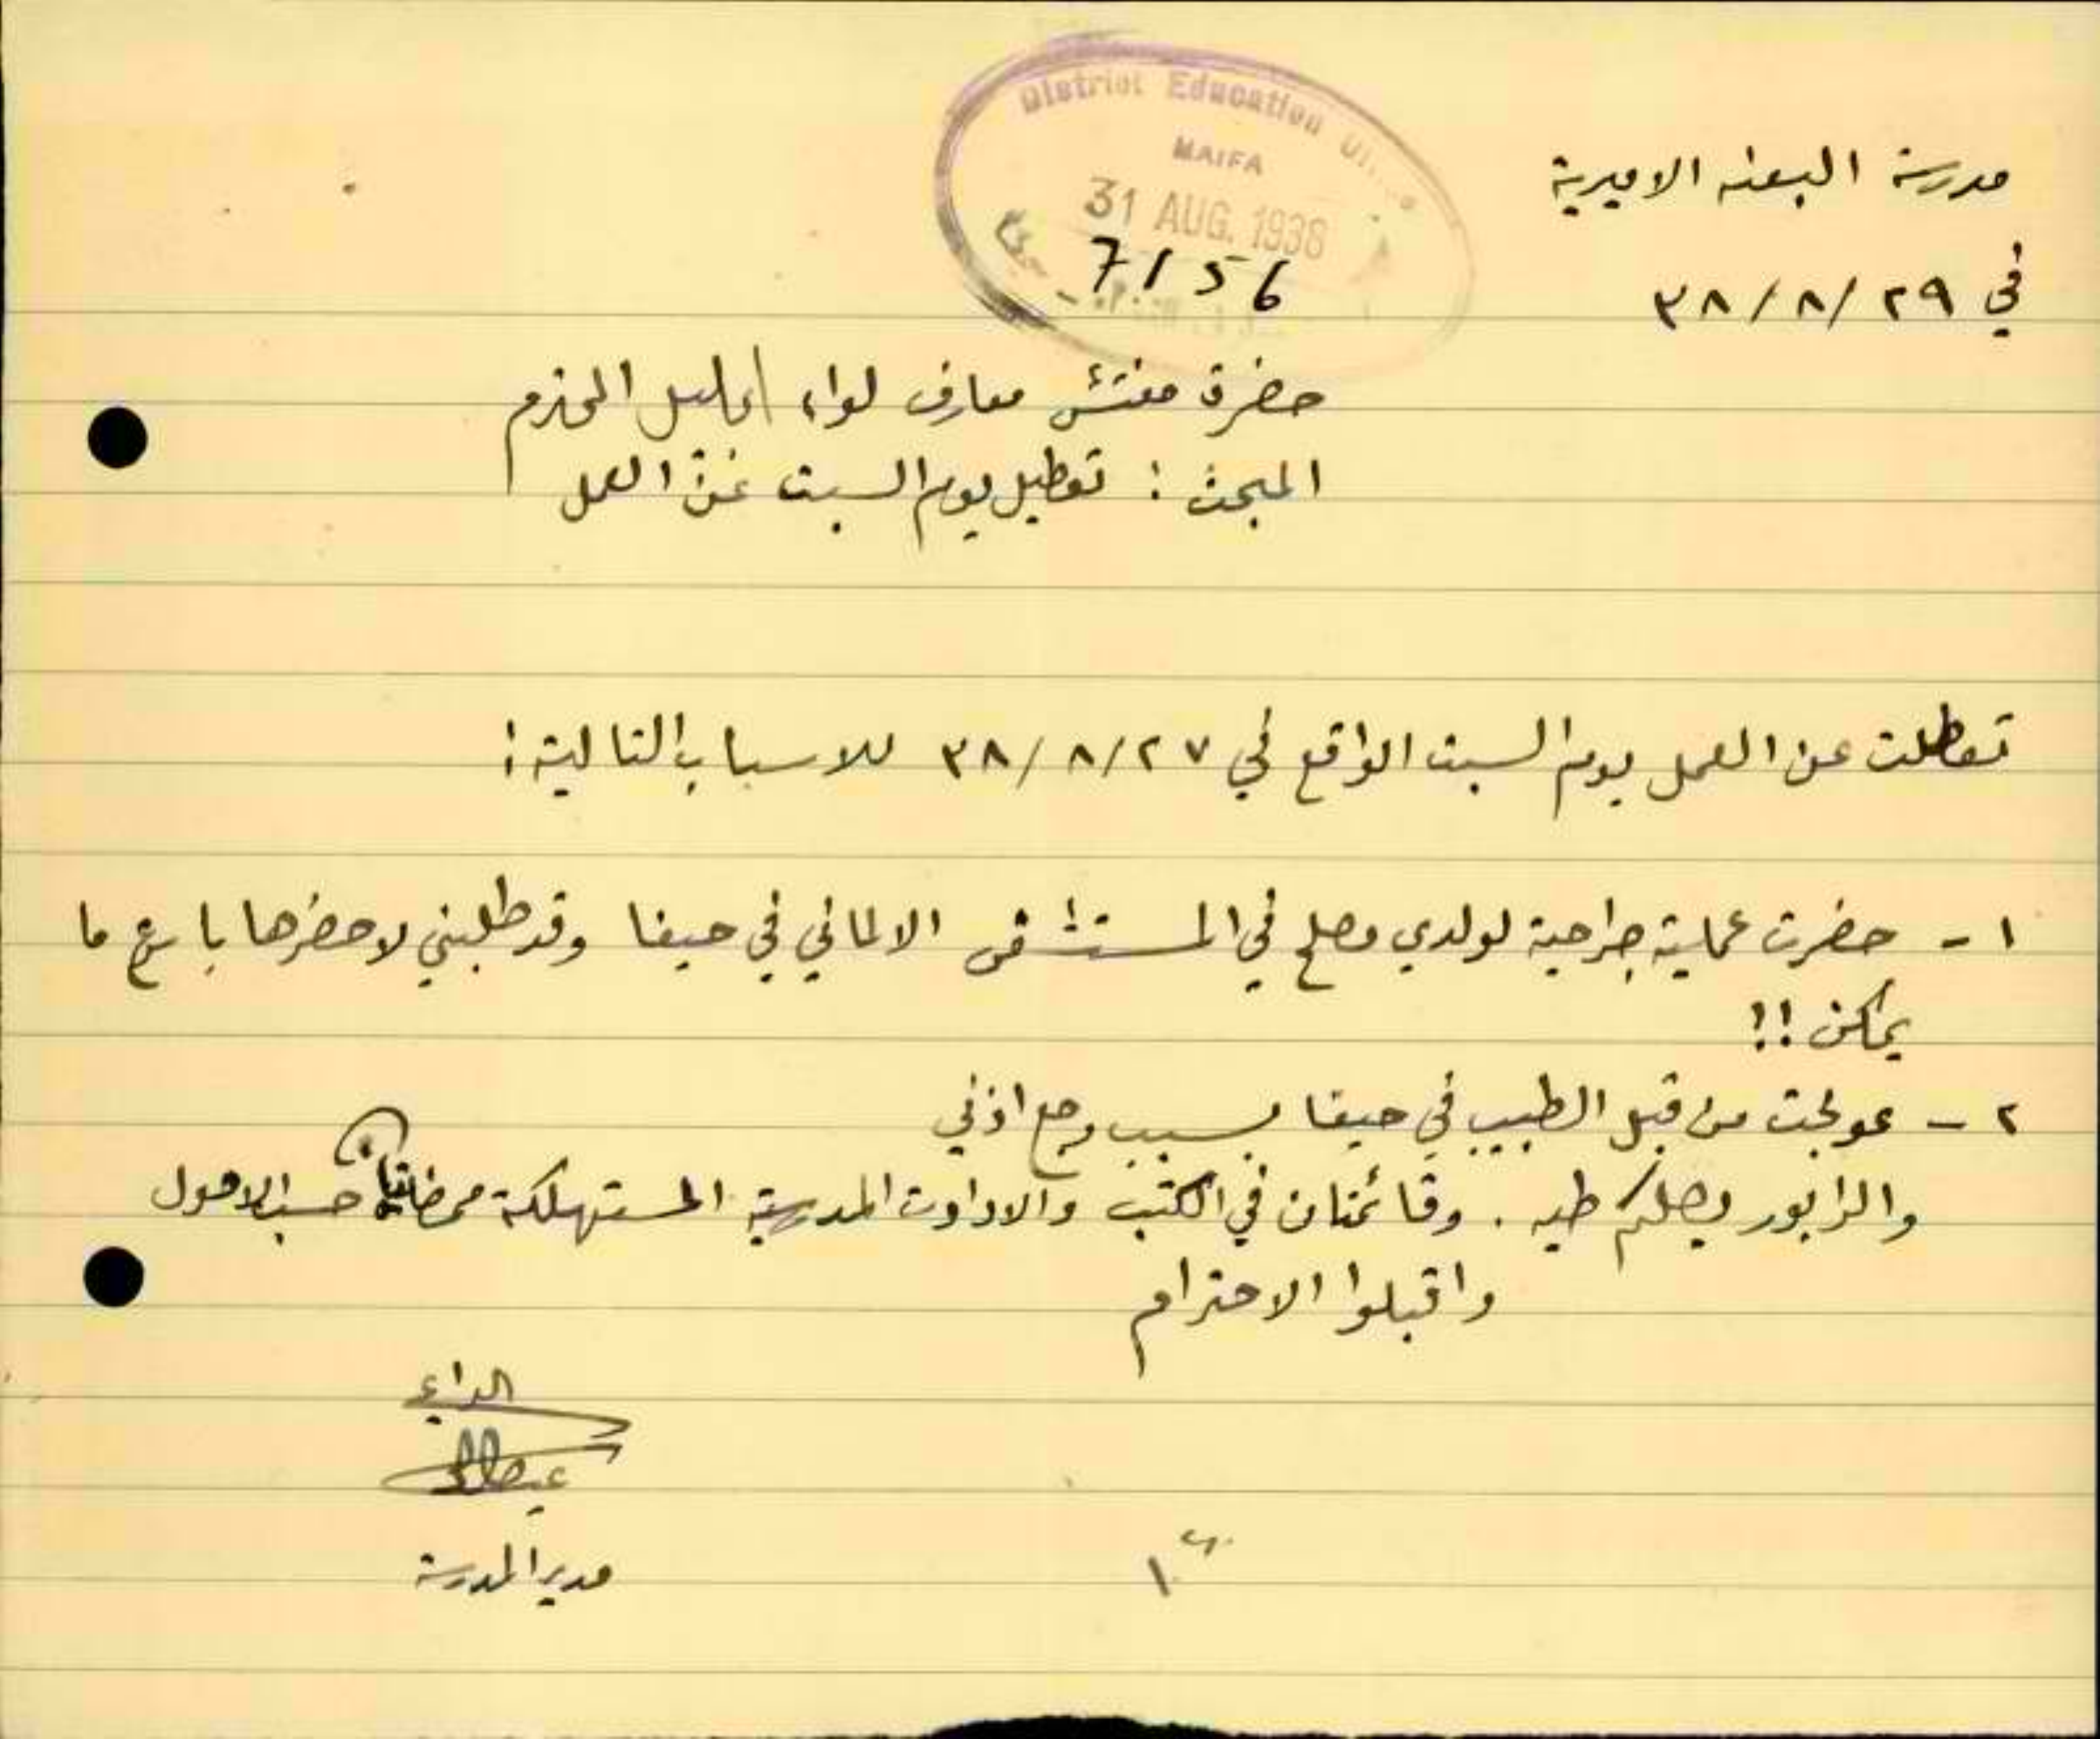 District Education
HAIFA
31 AUG. 1938
7156
مدرسة البعنه الاميرية
في ٢٩/٨/٣٨
حضرة مفتش معارف لواء الجليل المحترم
المبحث : تعطيل يوم السبت عن العمل
تعطلت عن العمل يوم السبت الواقع في ٢٧/٨/٣٨ للاسباب التالية :
١ - حضرت عملية جراحية لولدي مصلح في المستشفى الالماني في حيفا وقد طلبني لاحضرها باسرع ما
يمكن !!
٢ - عولجت من قبل الطبيب في حيفا بسبب وجع اذني
والرابور يصلكم طيه . وقائمتان في الكتب والادوات المدرسية المستهلكة حسب الاصول
واقبلوا الاحترام
الداعي
مدير المدرسة